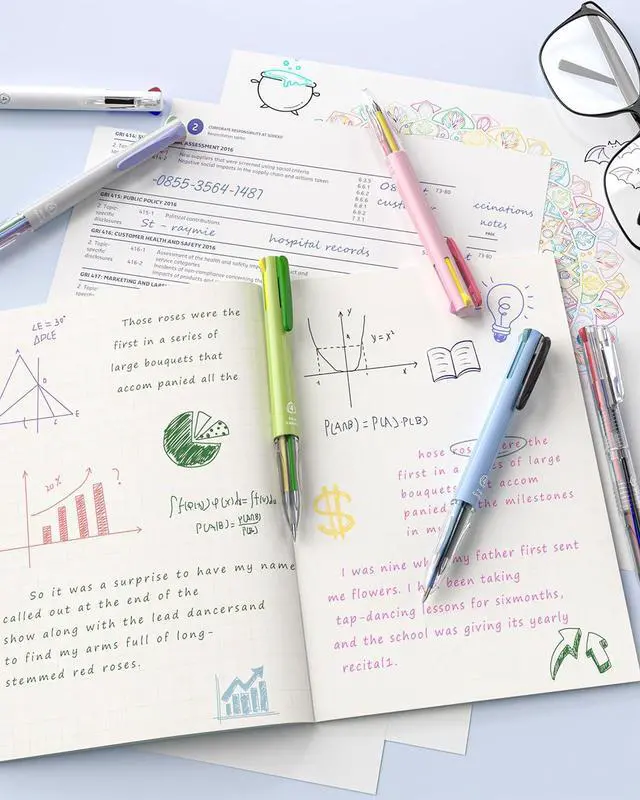 2 CORPORATE RESPONSIBILITY AT SCHOOL
ASSESSMENT 2016
2. Topic-
New suppliers that were screened using social criteria
Negative social impacts in the supply chain and actions taken
-0855-3564-1487
6.3.5
6.6.1
6.6.2
6.6.1
6.8.2
7.3.1
73-80
ccinations
notes
GRI 415: PUBLIC POLICY 2016
2. Topic-
specific
disclosures
415-1 Political contributions
St - raymie
hospital records
73-80
GRI 416: CUSTOMER HEALTH AND SAFETY 2016
2. Topic-
specific
disclosures
416-1
Assessment of the health and safety
service categories
416-2
Incidents of non-compliance concerning
impacts of products and
GRI 417: MARKETING AND
∠E=30°
△DCE
D
E
Those roses were the
first in a series of
large bouquets that
accom panied all the
20%
?
P(A|B)=
So it was a surprise to have my name
called out at the end of the
show along with the lead dancersand
to find my arms full of long-
stemmed red roses.
y
y=x²
x
P(A∩B)=P(A)·P(B)
hose the
first in a of large
bouquets accom
panied the milestones
in my
$
I was nine my father first sent
me flowers. I been taking
tap-dancing lessons for sixmonths,
and the school was giving its yearly
recital1.